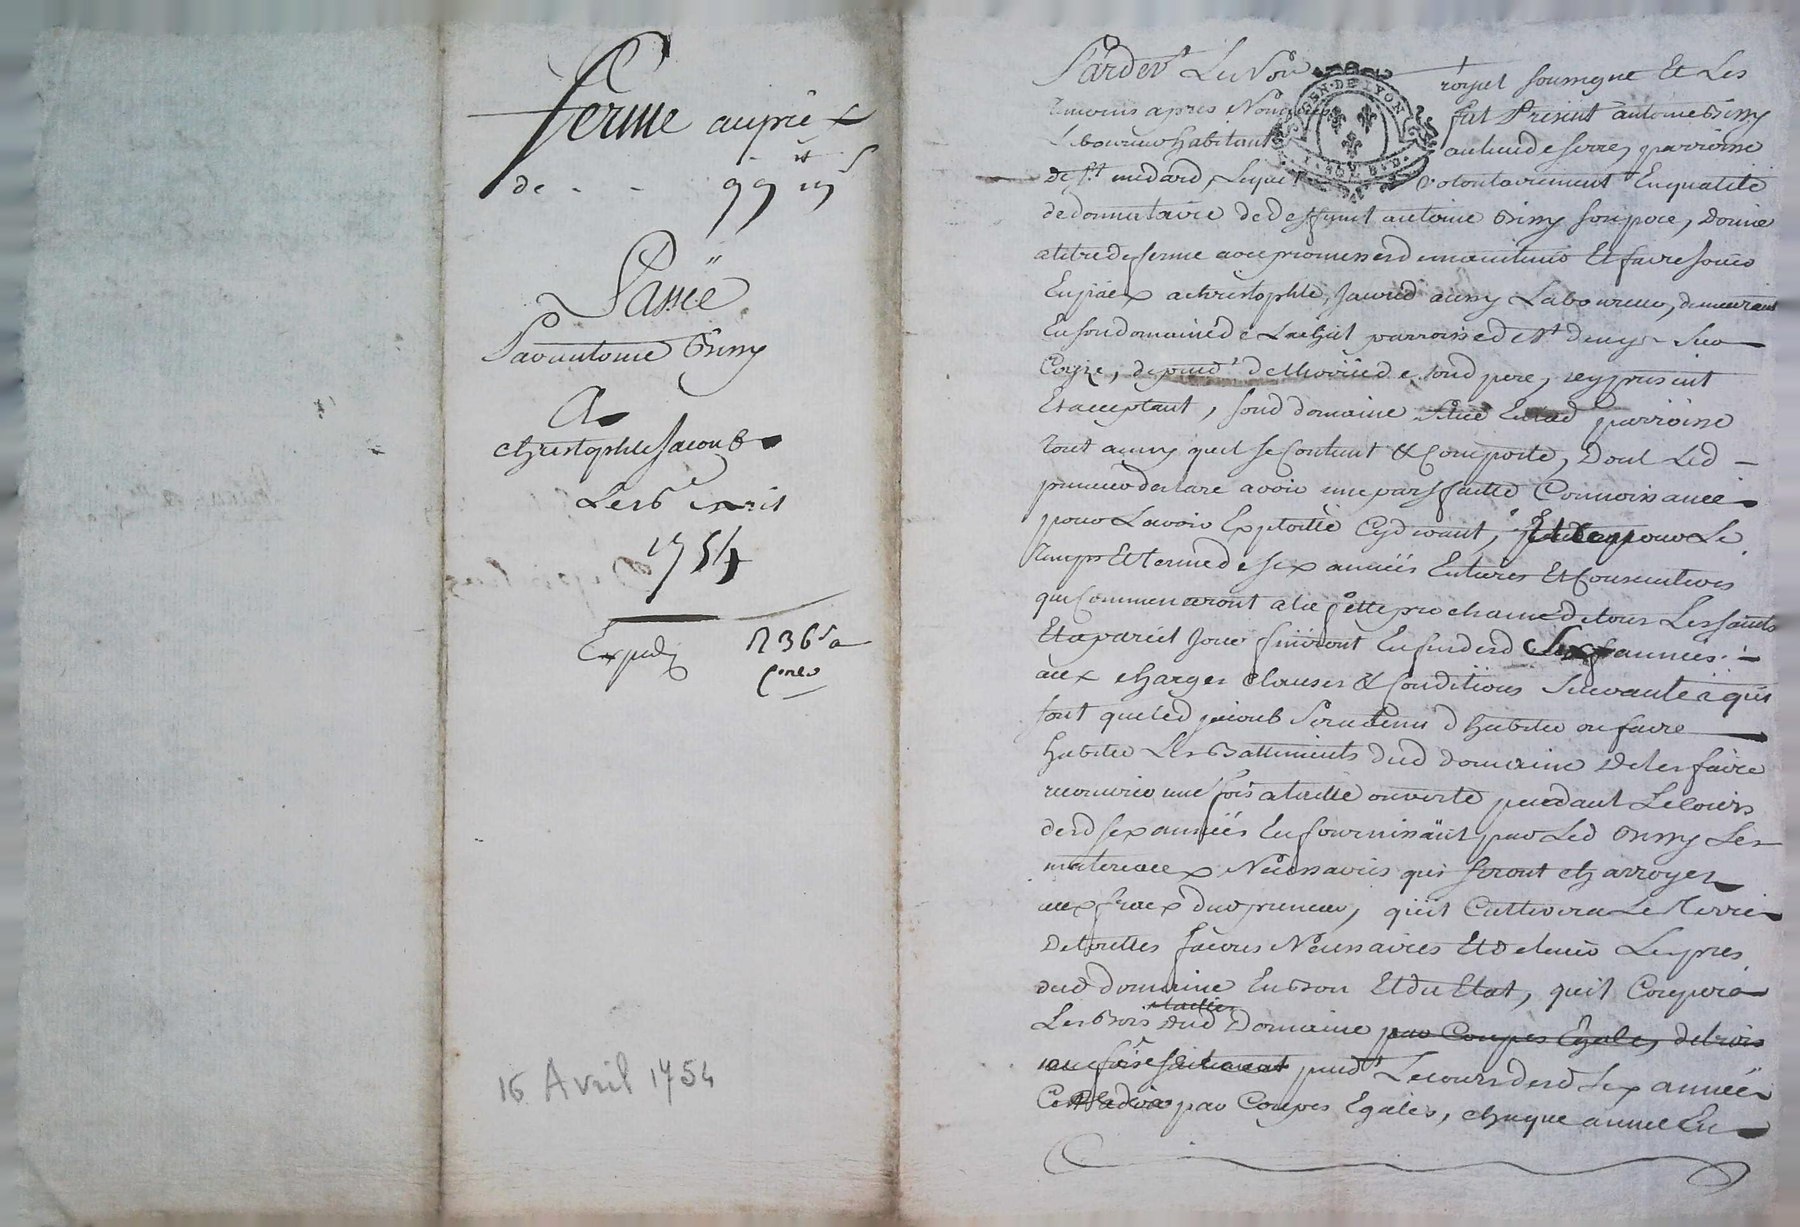 ferme auprix
de - - 99 lt 15 s
Passée
Par antoine Grissy
A
christophle Jacoub
Le 16 avril
1754
Expedié
R 36 s a
16 Avril 1754
GEN. DE LYON
Pardevt Le Nore royal soussigné Et Les
temoins apres Nommés fut Present antoine
Laboureur habitant au lieu de parroisse
de St medard, Lequel volontairement Enqualité
de donnataire de deffunt antoine son pere, Donne
atitre de ferme avec promesse de maintenir Et faire Jouir
Enpaix a christophle Laboureur, demeurant
En son domaine de parroisse de St denys - Sur
Coyse, de son d pere, icy present
Et acceptant, son d domaine Situé En lad parroisse
tout ainsy quil se Contient & Comporte, Dont Led -
preneur declare avoir une parffaitte Connoissance
pour Lavoir Exploitté Cydevant, pour Le
temps Et terme de six années Entieres Et Consecutives
qui Commenceront ala fette prochaine de tous Les saints
Et apareil Jour finiront En fin desd Six années. -
aux charges clauses & Conditions Suivantes qui
sont que led jacoub Sera tenu d habiter ou faire
habiter Les Battiments dud domaine De les faire
recouvrir une fois a tuille ouverte pendant Le Cours
desd six années En fournissant par Led Les
materiaux Necessaires qui seront charroyes
aux fraix dud preneur, quil Cultivera Le terrier
De touttes façons Necessaires Et De tenir Les prés
dud domaine En Bon Et du Etat, quil Coupera
Les Bois taillis dud Domaine par Coupes Egales, de trois
une fois seulement pendt Le cours desd Six années
par Coupes Egales, chaque année En